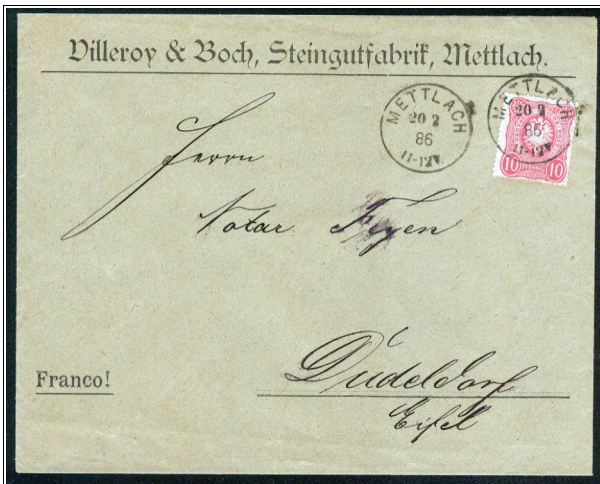 Villeroy & Boch, Steingutfabrik, Mettlach.
METTLACH
20 2
86
11-12V
METTLACH
20 2
86
11-12V
10 10
Herrn
Notar Feyen
Franco!
Dudeldorf
Eifel